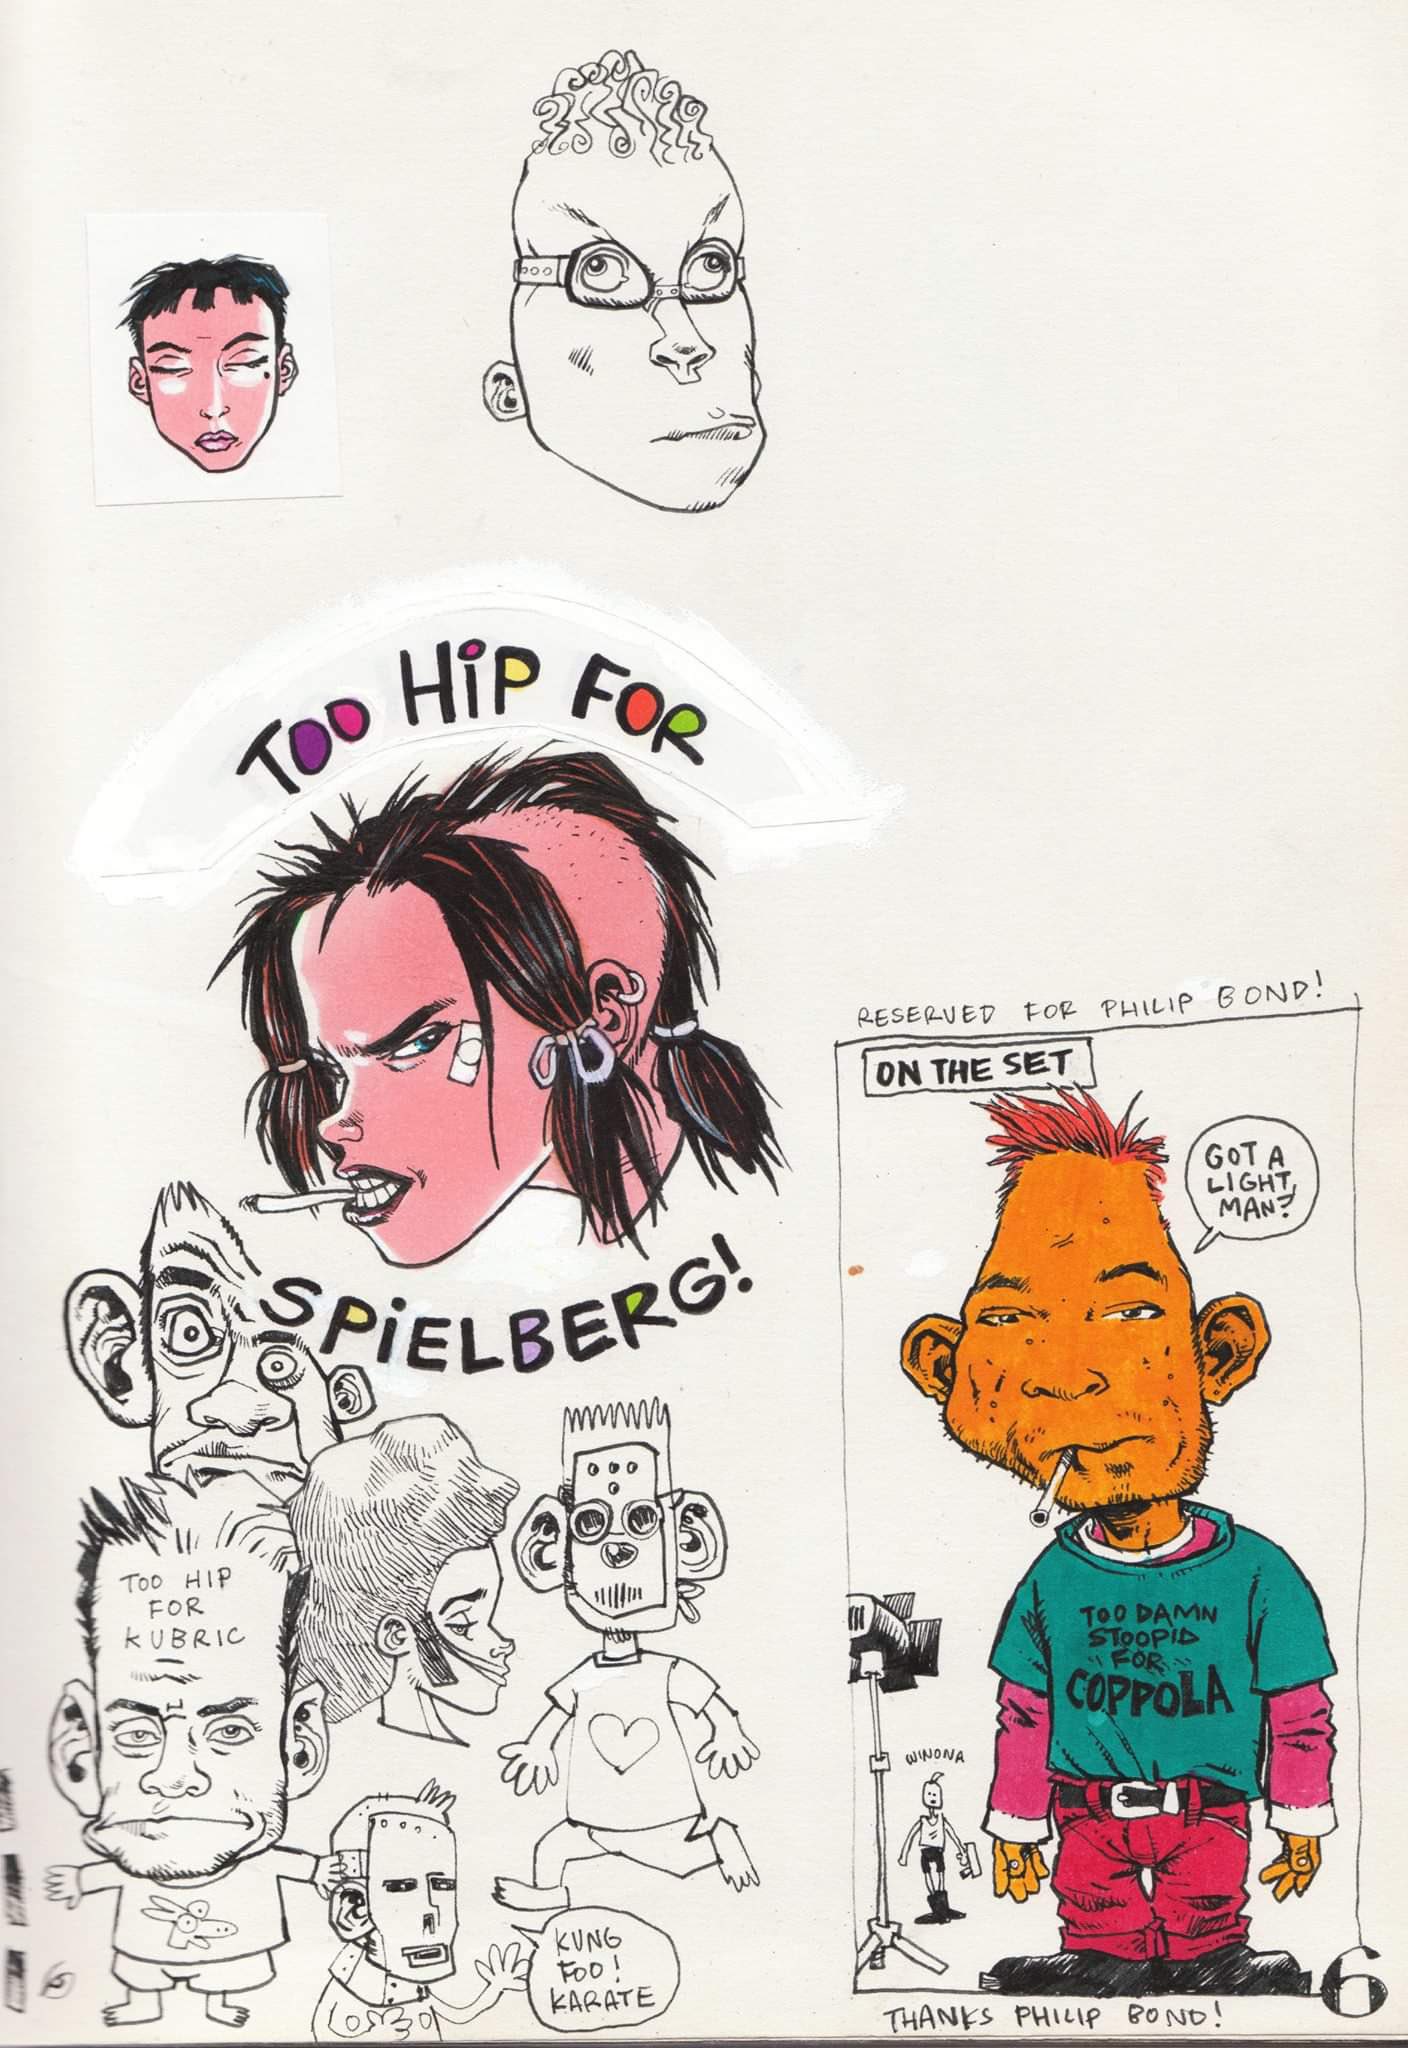 TOO HiP FOR
SPiELBERG!
RESERVED FOR PHILIP BOND!
ON THE SET
GOT A
LIGHT,
MAN?
TOO DAMN
STOOPID
"FOR"
COPPOLA
WINONA
TOO HIP
FOR
KUBRIC
KUNG
FOO!
KARATE
6
THANKS PHILIP BOND!